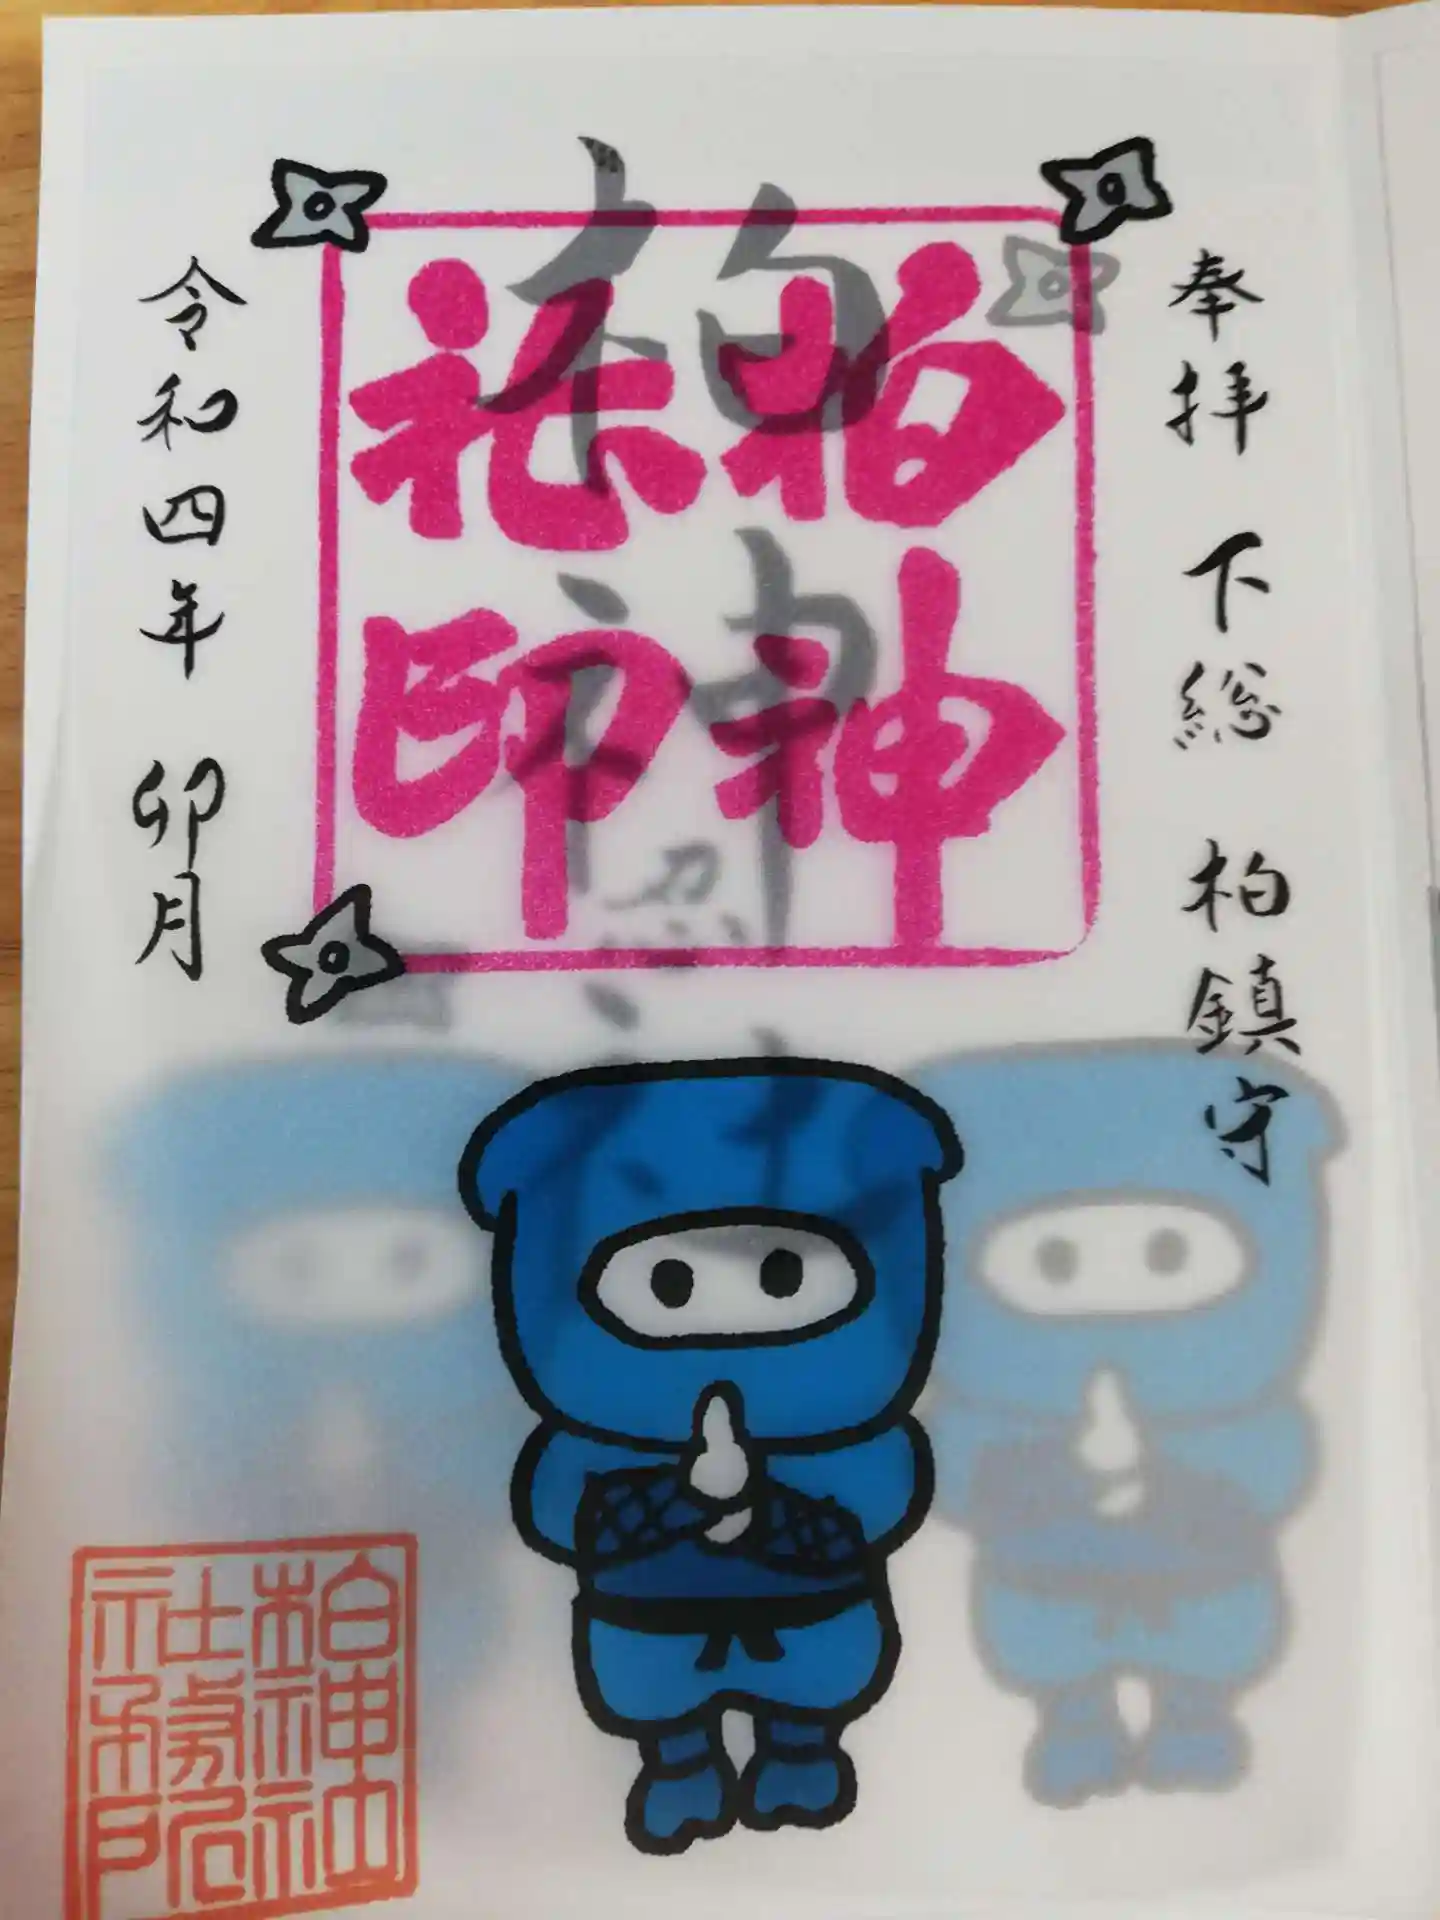 奉拝 下総 柏鎮守
柏神
社印
柏神
忍
令和四年 卯月
柏神社
社務所